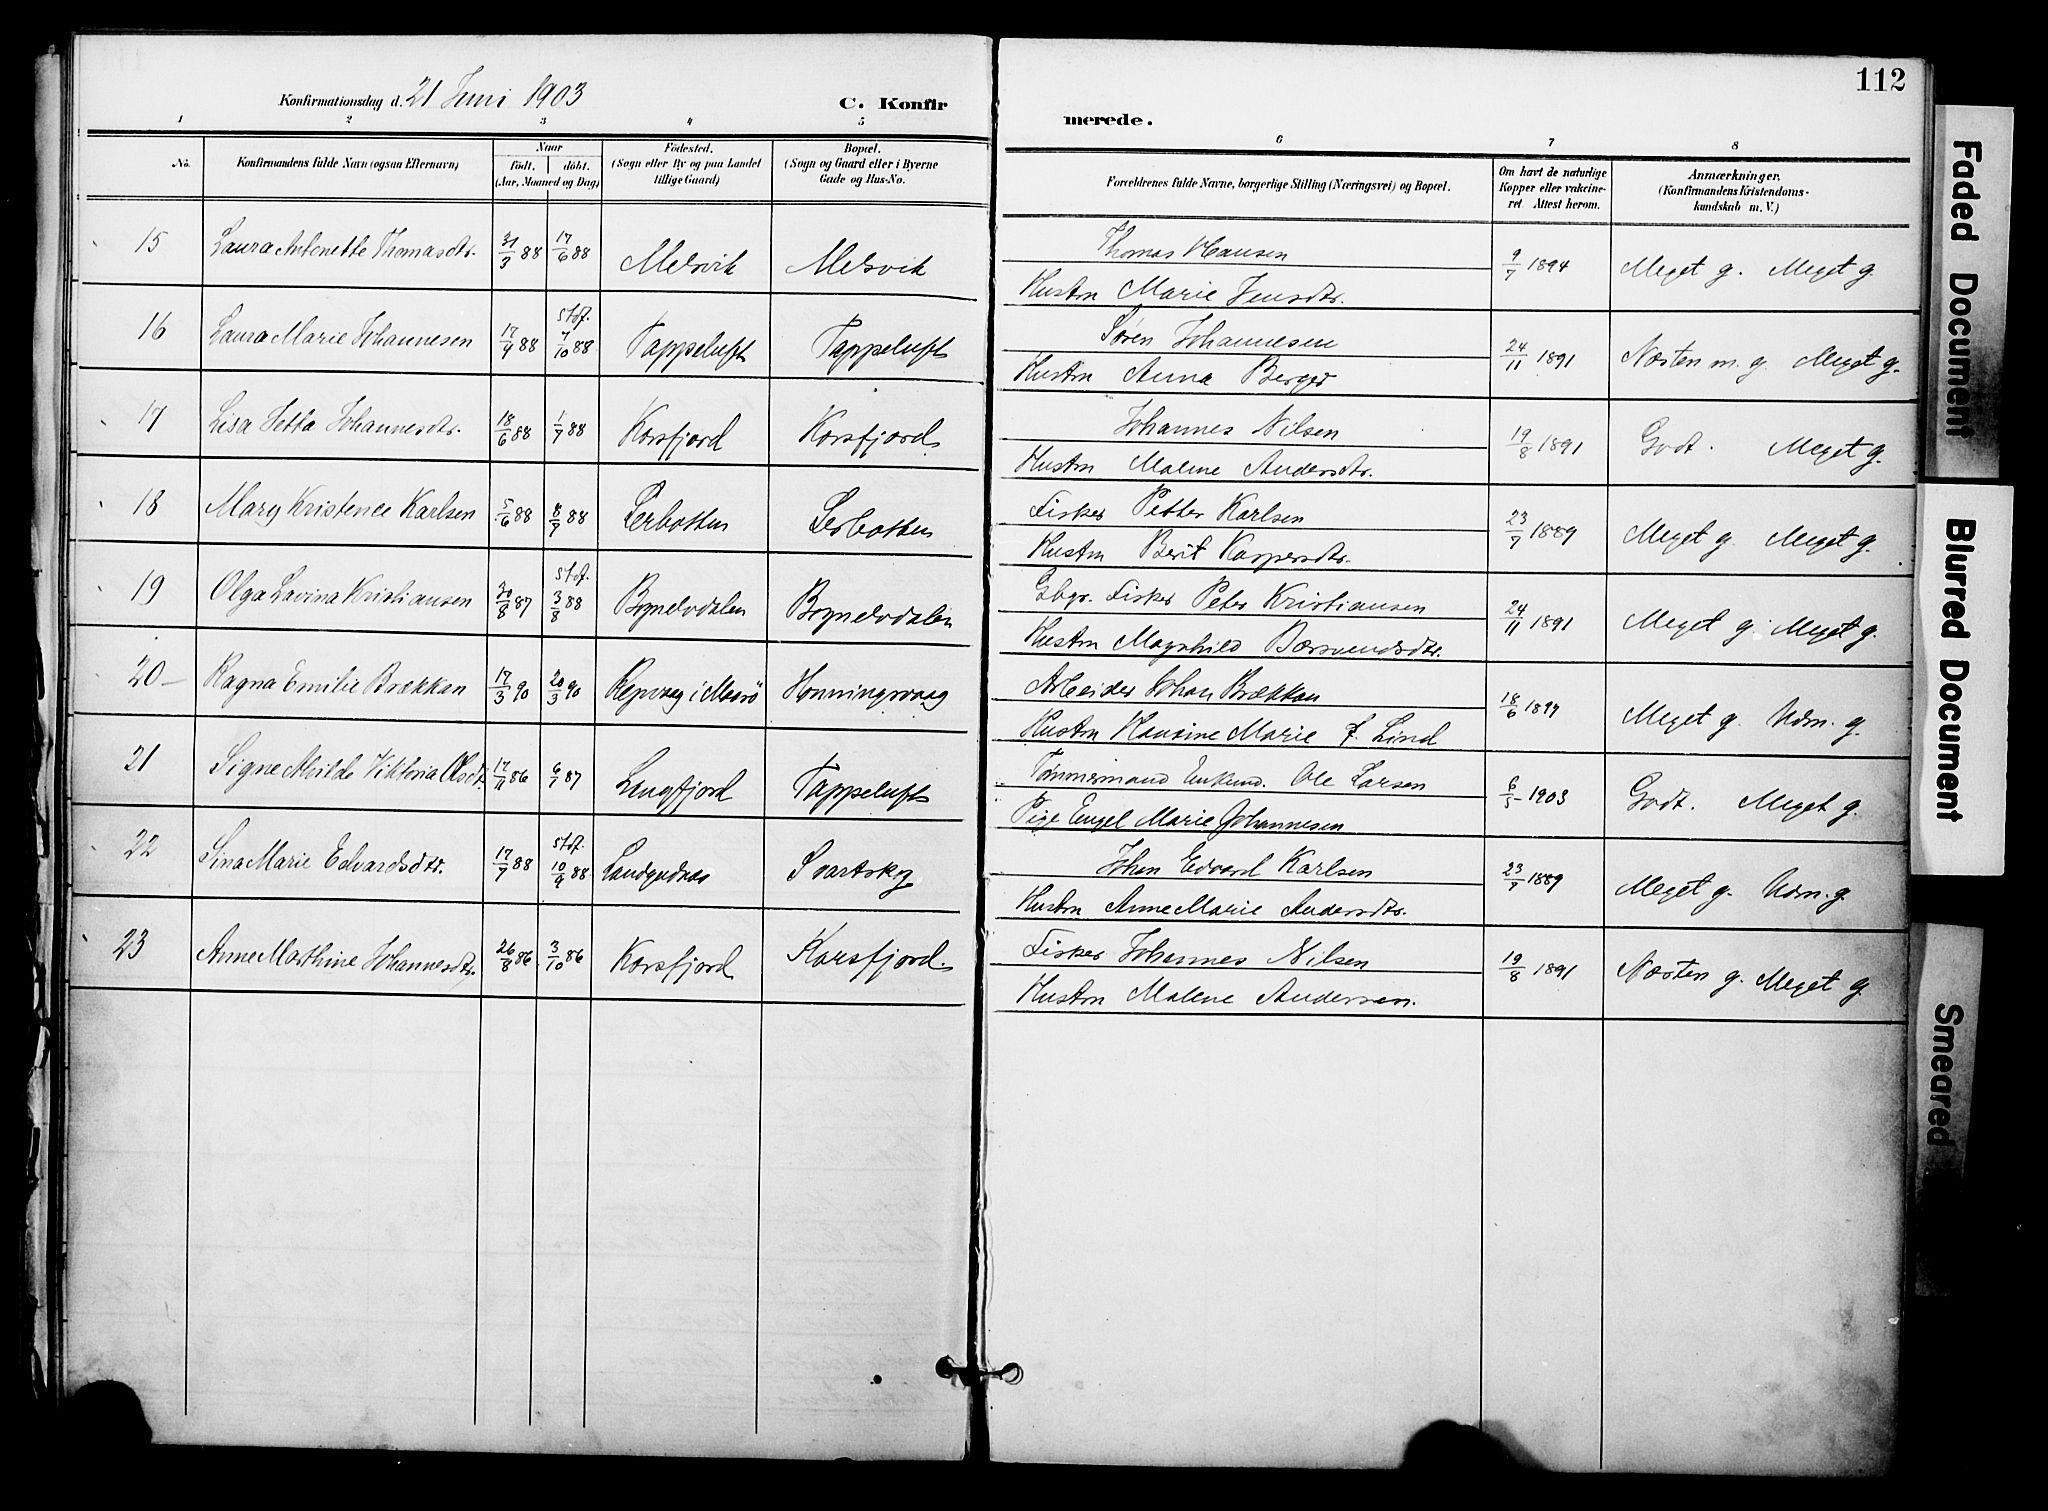 112
Konfirmationsdag d. 21 Juni 1903
C. Konfir
merede.
1 2 3 4 5 6 7 8
No. Konfirmandens fulde Navn (ogsaa Efternavn) Naar født. døbt. (Aar, Maaned og Dag) Fødested. (Sogn eller By og paa Landet tillige Gaard) Bopæl. (Sogn og Gaard eller i Byerne Gade og Hus-No.
Forældrenes fulde Navne, borgerlige Stilling (Næringsvei) og Bopæl. Om havt de naturlige Kopper eller vakcineret. Attest herom. Anmærkninger. (Konfirmandens Kristendomskundskab m. V.)
15 Laura Antonette Thomasdtr. 31/3 88 17/6 88 Melsvik Melsvik Thomas Hansen 9/7 1894 Meget g. Meget g.
Hustru Marie Jensdtr.
16 Laura Marie Johannesen 17/4 88 stdf. 7/10 88 Tappeluft Tappeluft Søren Johannesen 24/11 1891 Næsten m. g. Meget g.
Hustru Anna Berger
17 Lisa Jetta Johannesdtr. 18/6 88 1/7 88 Korsfjord Korsfjord Johannes Nilsen 19/8 1891 Godt. Meget g.
Hustru Malene Andersdtr.
18 Mary Kristence Karlsen 5/6 88 8/7 88 Lerbotten Lerbotten Fisker Petter Karlsen 23/7 1889 Meget g. Meget g.
Hustru Berit Kaspersdtr.
19 Olga Lavina Kristiansen 30/8 87 stdf. 3/8 88 Bognelvdalen Bognelvdalen Gbgr. Fisker Peter Kristiansen 24/11 1891 Meget g. Meget g.
Hustru Magnhild Bersvendsdtr.
20 Ragna Emilie Brækkan 17/3 90 20/3 90 Repvaag i Maasö Honningsvaag Arbeider Johan Brækkan 18/6 1897 Meget g. Udm. g.
Hustru Hansine Marie f. Lind
21 Signe Alvilde Viktoria Olsdtr. 17/11 86 6/7 87 Langfjord Tappeluft Tømmermand Enkemd. Ole Larsen 6/5 1903 Godt. Meget g.
Pige Engel Marie Johannesen
22 Sina Marie Edvardsdtr. 17/7 88 stdf. 10/9 88 Svartskog Johan Edvard Karlsen 23/7 1889 Meget g. Udm. g.
Hustru Anne Marie Andersdtr.
23 Anne Marthine Johannesdtr. 26/8 86 3/10 86 Korsfjord Korsfjord Fisker Johannes Nilsen 19/8 1891 Næsten g. Meget g.
Hustru Malene Andersen.
Faded Document
Blurred Document
Smeared